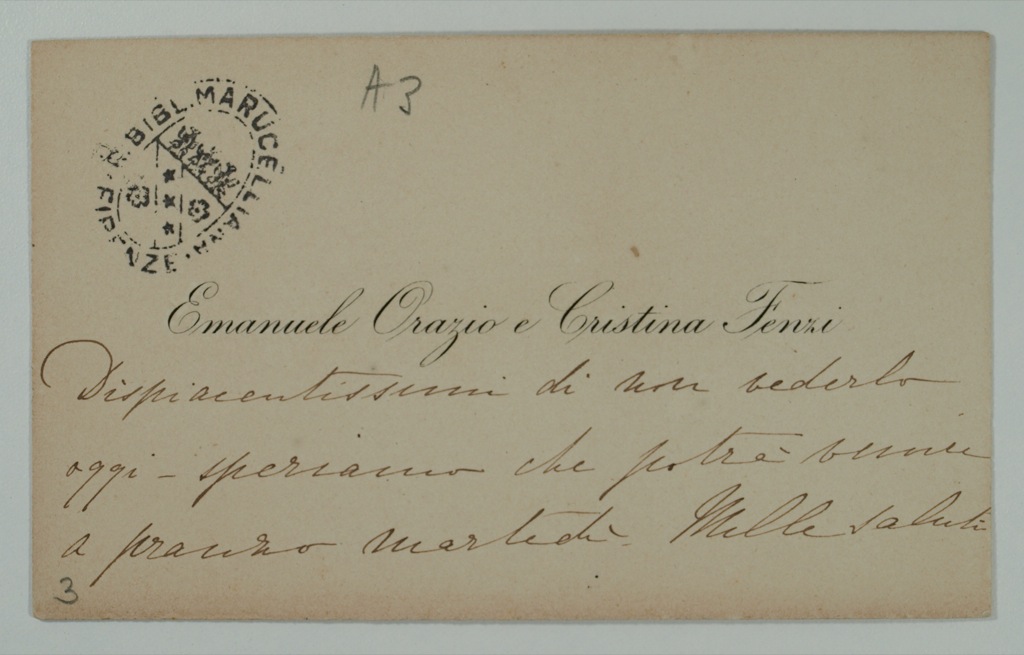 A 3
R. BIBL. MARUCELLIANA · FIRENZE ·
Emanuele Orazio e Cristina Fenzi
Dispiacentissimi di non vederlo
oggi - speriamo che potrà venire
a pranzo martedì. Mille saluti
3